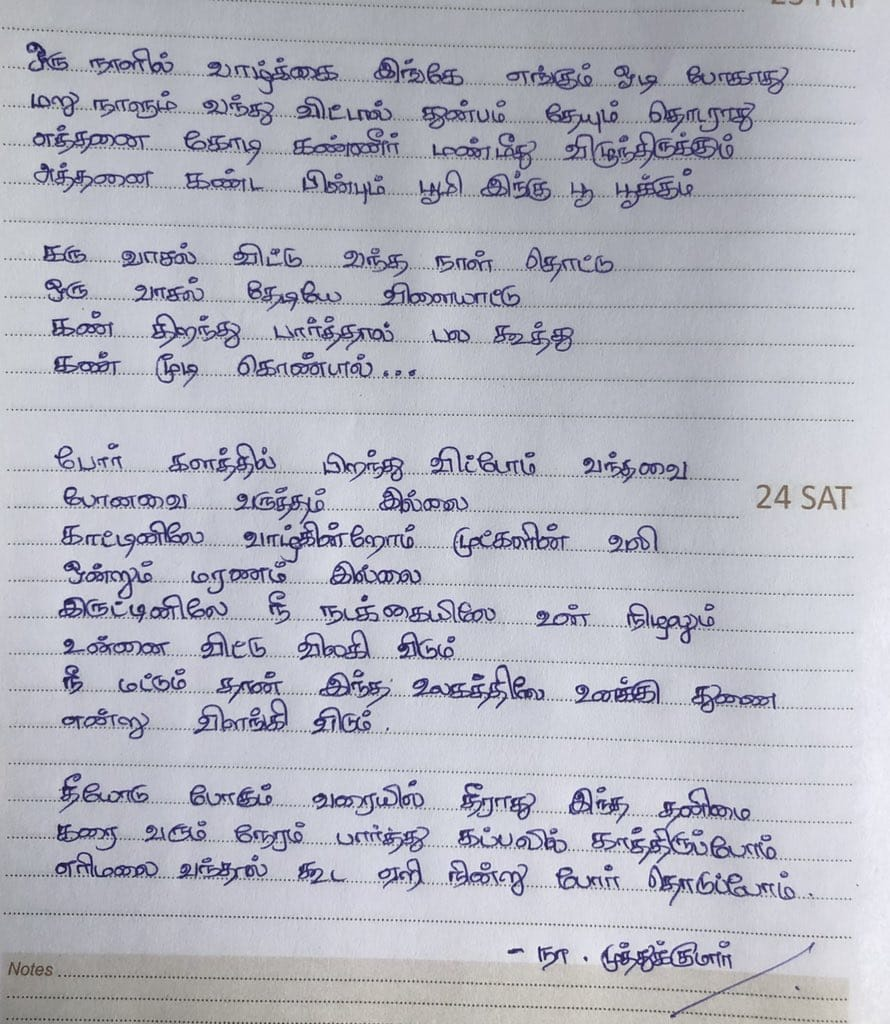 23 FRI
ஒரு நாளில் வாழ்க்கை இங்கே எங்கும் ஓடி போகாது
மறு நாளும் வந்து விட்டால் துன்பம் தேயும் தொடராது
எத்தனை கோடி கண்ணீர் மண்மீது விழுந்திருக்கும்
அத்தனை கண்ட பின்பும் பூமி இங்கு பூ பூக்கும்
கரு வாசல் விட்டு வந்த நாள் தொட்டு
ஒரு வாசல் தேடியே விளையாட்டு
கண் திறந்து பார்த்தால் பல கூத்து
கண் மூடி கொண்டால்...
போர் களத்தில் பிறந்து விட்டோம் வந்தவை
போனவை வருத்தம் இல்லை
24 SAT
காட்டினிலே வாழ்கின்றோம் முட்களின் வலி
ஒன்றும் மரணம் இல்லை
இருட்டினிலே நீ நடக்கையிலே உன் நிழலும்
உன்னை விட்டு விலகி விடும்
நீ மட்டும் தான் இந்த உலகத்திலே உனக்கு துணை
என்று விளங்கி விடும்.
தீயோடு போகும் வரையில் தீராது இந்த தனிமை
கரை வரும் நேரம் பார்த்து கப்பலில் காத்திருப்போம்
எரிமலை வந்தால் கூட ஏறி நின்று போர் தொடுப்போம்.
- நா. முத்துக்குமார்
Notes